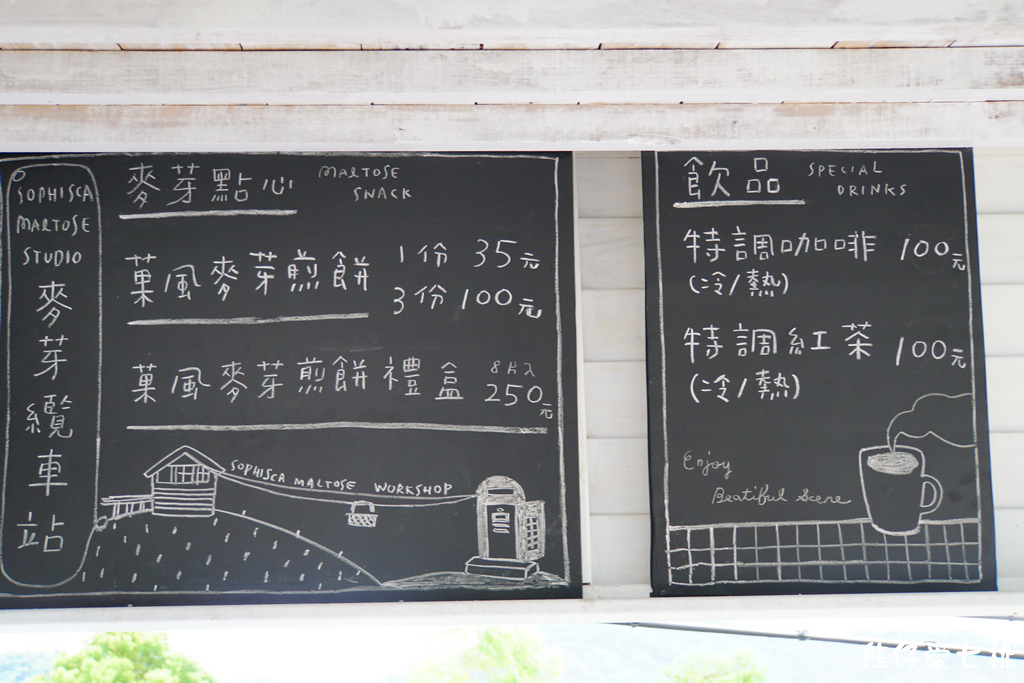 SOPHISCA
MALTOSE
STUDIO
麥芽纜車站
麥芽點心 MALTOSE
SNACK
菓風麥芽煎餅 1份 35元
3份 100元
菓風麥芽煎餅禮盒 8片入
250元
SOPHISCA MALTOSE WORKSHOP
飲品 SPECIAL
DRINKS
特調咖啡 100元
(冷/熱)
特調紅茶 100元
(冷/熱)
Enjoy
Beatiful Scene